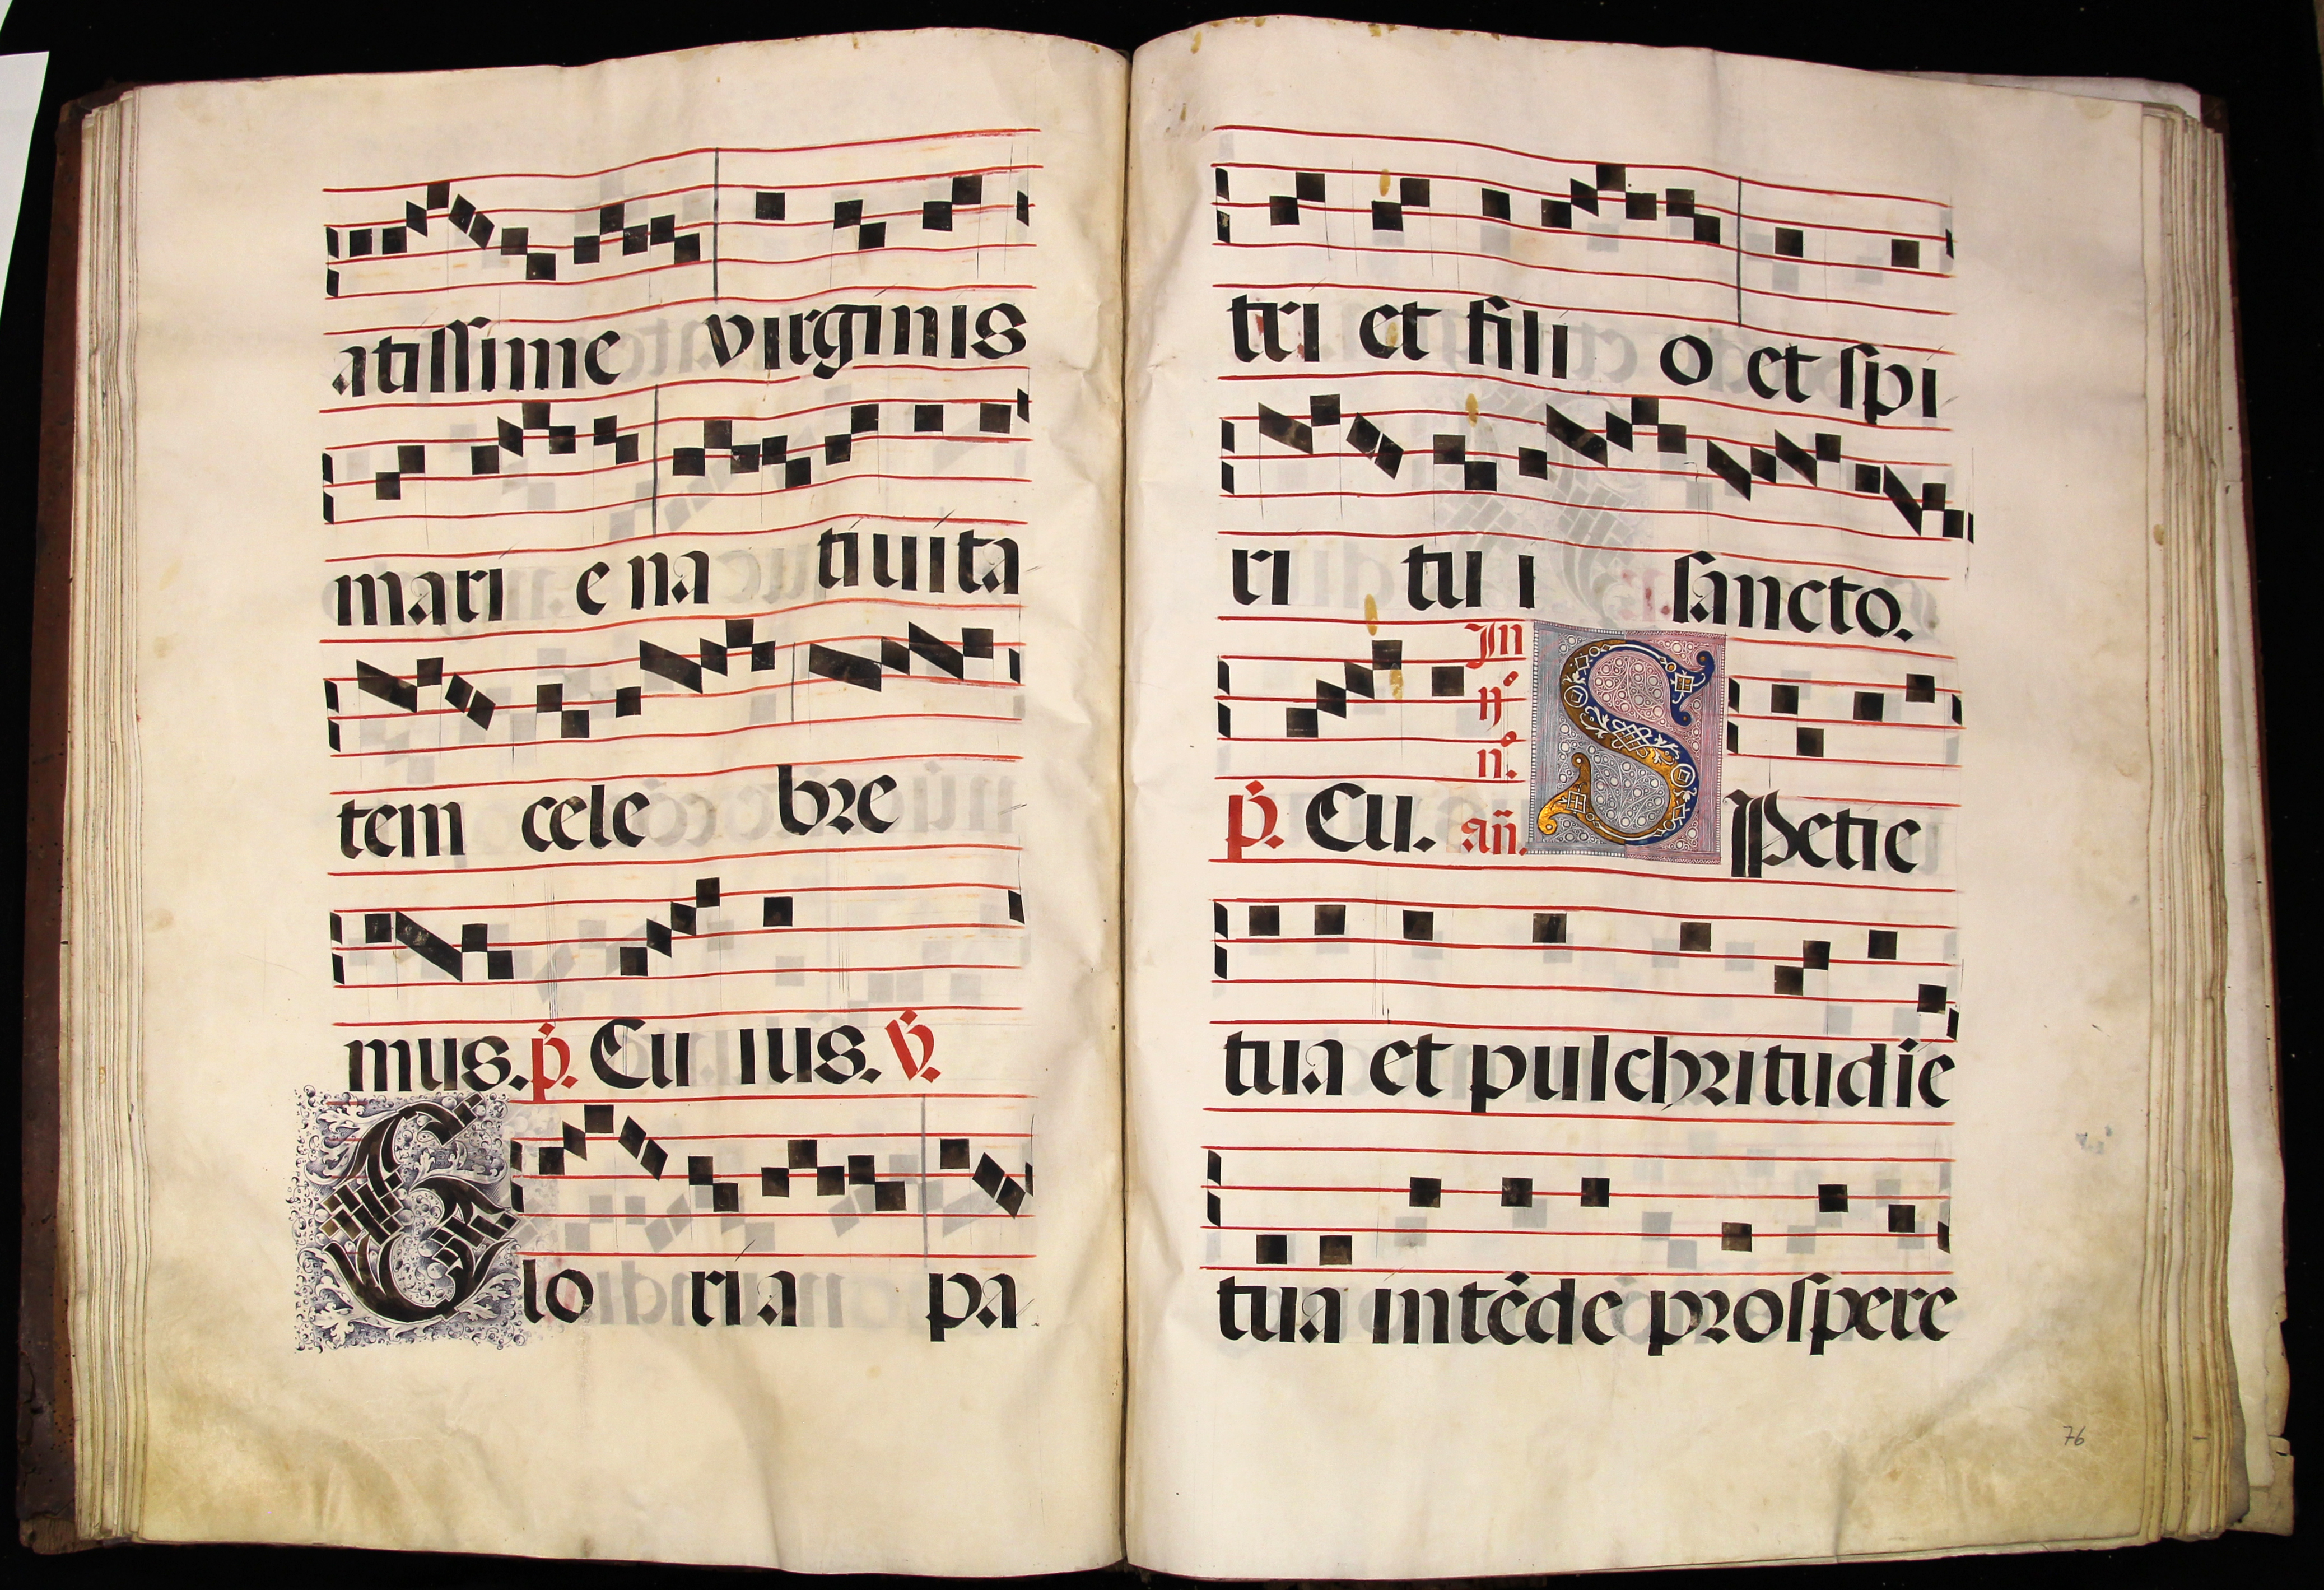 atissime virginis
mari e na tiuita
tem cele bre
mus. p̄. Cu ius. v̄.
Glo ria pa
tri et fili o et spi
ri tu i sancto.
In
ij°
n°.
p̄. Cu. añ. SPetie
tua et pulchritudīe
tua intēde prospere
76